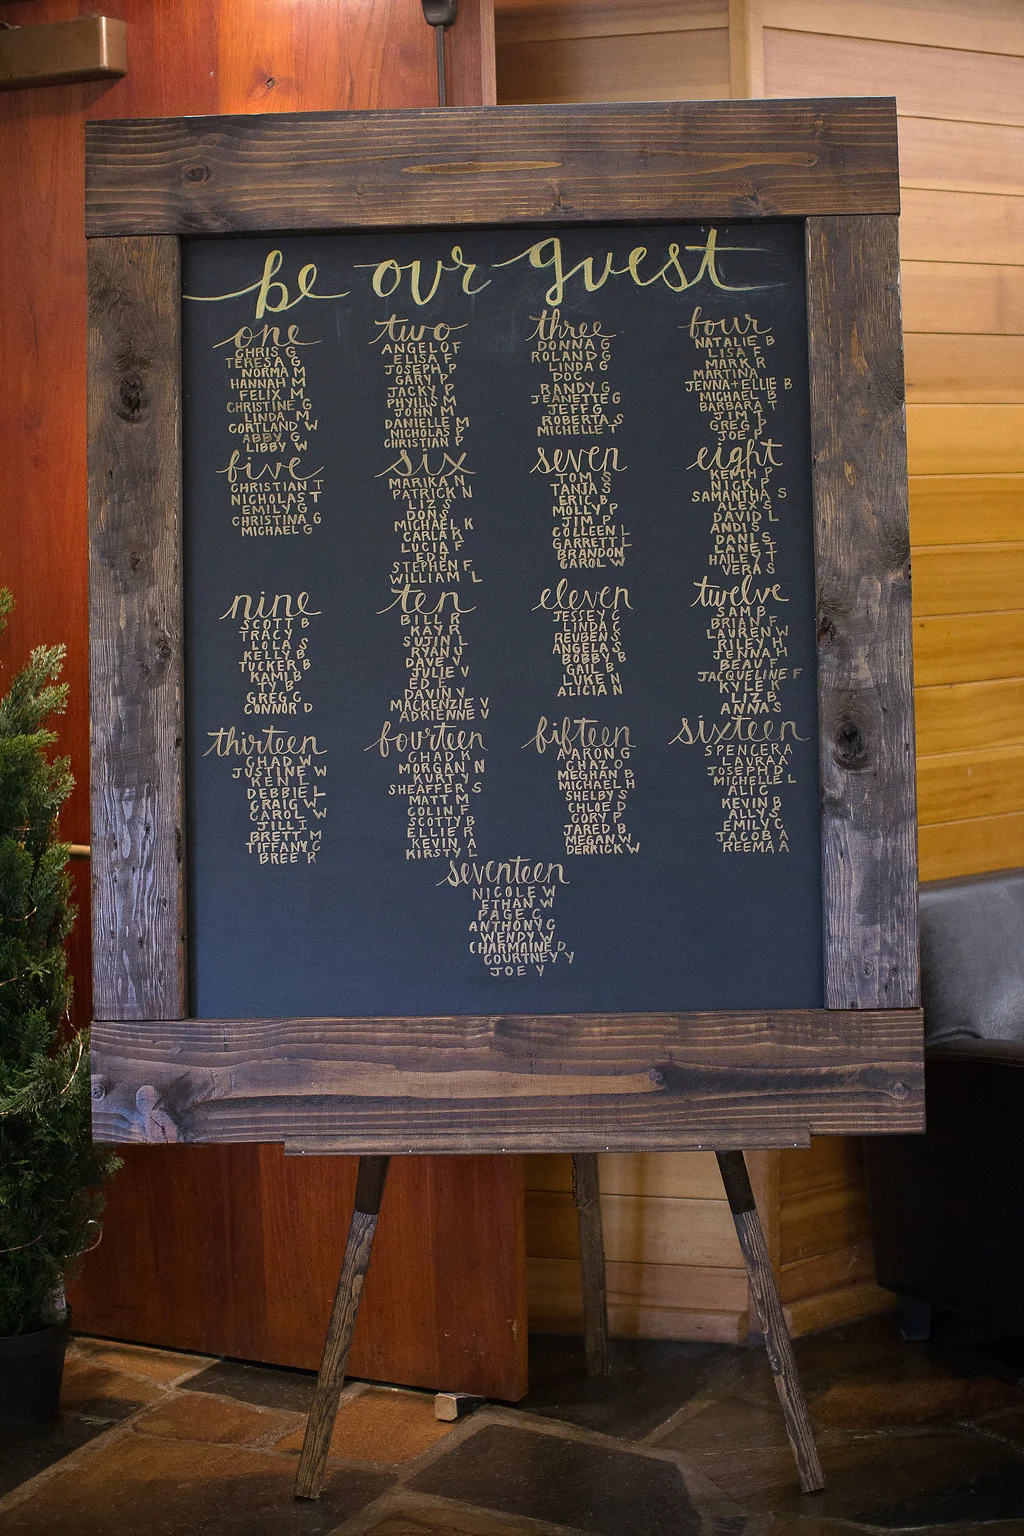 be our guest
one
CHRIS G
TERESA G
NORMA M
HANNAH M
FELIX M
CHRISTINE G
LINDA M
CORTLAND W
ABBY G
LIBBY W
two
ANGELO F
ELISA F
JOSEPH P
GARY P
JACKY P
PHYLLIS M
JOHN M
DANIELLE M
NICHOLAS P
CHRISTIAN P
three
DONNA G
ROLAND G
LINDA G
DOC
RANDY G
JEANETTE G
JEFF G
ROBERTA S
MICHELLE T
four
NATALIE B
LISA F
MARK R
MARTINA
JENNA+ELLIE B
MICHAEL B
BARBARA T
JIM T
GREG P
JOE P
five
CHRISTIAN T
NICHOLAS T
EMILY G
CHRISTINA G
MICHAEL G
six
MARIKA N
PATRICK N
LIZ S
DON S
MICHAEL K
CARLA K
LUCIA F
ED J
STEPHEN F
WILLIAM L
seven
TOM S
TANJA S
ERIC B
MOLLY P
JIM P
COLLEEN L
GARRETT L
BRANDON
CAROL W
eight
KEITH P
NICK P
SAMANTHA S
ALEX S
DAVID L
ANDI S
DANI S
LANE T
HAILEY T
VERA S
nine
SCOTT B
TRACY
LOLA S
KELLY B
TUCKER B
KAMI B
T B
GREG C
CONNOR D
ten
BILL R
KAY R
SUJIN L
RYAN U
DAVE V
JULIE V
ED L
DAVIN V
MACKENZIE V
ADRIENNE V
eleven
JESSEY C
LINDA C
REUBEN S
ANGELA S
BOBBY B
GAIL B
LUKE N
ALICIA N
twelve
SAM B
BRIAN F
LAUREN W
RILEY H
JENNA H
BEAU F
JACQUELINE F
KYLE K
LYZ B
ANNA S
thirteen
CHAD W
JUSTINE W
KEN L
DEBBIE L
CRAIG W
CAROL W
JILL I
BRETT M
TIFFANY C
BREE R
fourteen
CHAD K
MORGAN N
KURT Y
SHEAFFER S
MATT M
COLIN F
SCOTTY B
ELLIE R
KEVIN A
KIRSTY L
fifteen
AARON G
CHAZ O
MEGHAN B
MICHAEL H
SHELBY S
CHLOE D
CORY P
JARED B
MEGAN W
DERRICK W
sixteen
SPENCER A
LAURA A
JOSEPH D
MICHELLE L
ALI C
KEVIN B
ALLY S
EMILY C
JACOB A
REEMA A
seventeen
NICOLE W
ETHAN W
PAGE C
ANTHONY C
WENDY W
CHARMAINE D
COURTNEY Y
JOE Y